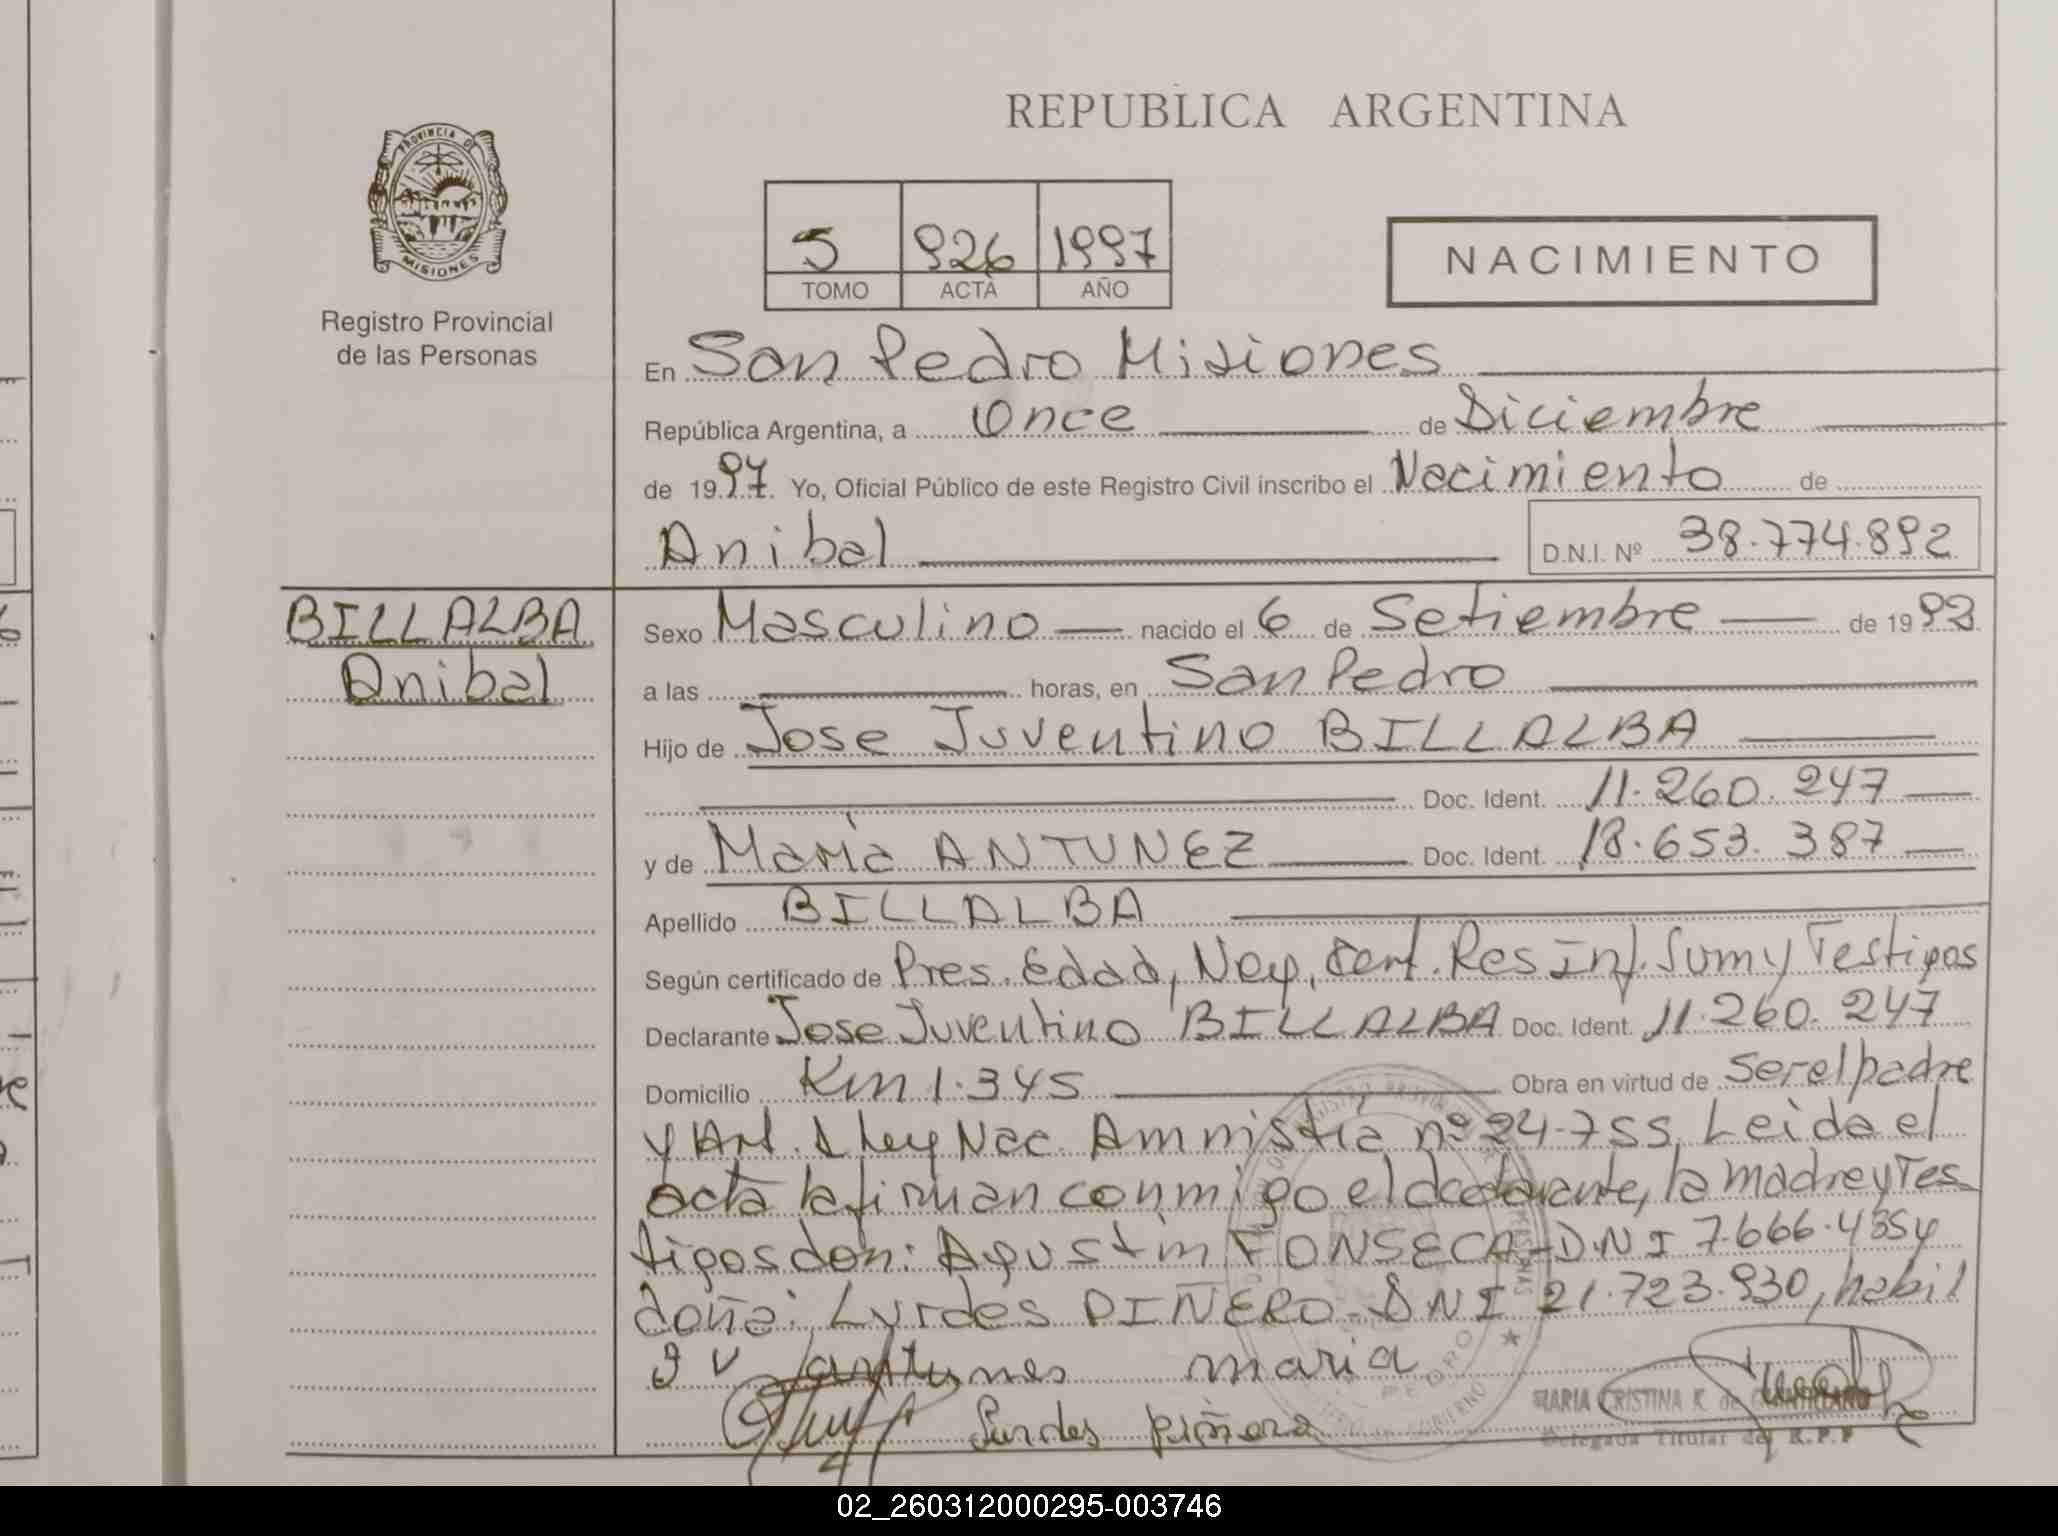 REPUBLICA ARGENTINA
PROVINCIA DE
MISIONES
Registro Provincial
de las Personas
5 926 1997
TOMO ACTA AÑO
NACIMIENTO
En San Pedro Misiones
República Argentina, a Once de Diciembre
de 1997. Yo, Oficial Público de este Registro Civil inscribo el Nacimiento de
Anibal D.N.I. Nº 38.774.892
BILLALBA
Anibal
Sexo Masculino nacido el 6 de Setiembre de 19
a las horas, en San Pedro
Hijo de Jose Juventino BILLALBA
Doc. Ident. 11.260.247
y de Maria ANTUNEZ Doc. Ident. 18.653.387
Apellido BILLALBA
Según certificado de Pres. Edad, Neg, Cert. Res Inf. Sum y Testigos
Declarante Jose Juventino BILLALBA Doc. Ident. 11.260.247
Domicilio Km 1.345 Obra en virtud de ser el padre
y Art. 1 Ley Nac. Amnistia nº 24.755, Leida el
acta la firman conmigo el declarante, la madre y Tes
tigos don: Agustin FONSECA-DNI 7.666.435 y
doña: Lurdes PIÑERO-DNI 21.723.930, habil
antunes maria
Lurdes piñero
MARIA CRISTINA K. de
Delegada Titular del R.P.P
02_260312000295-003746